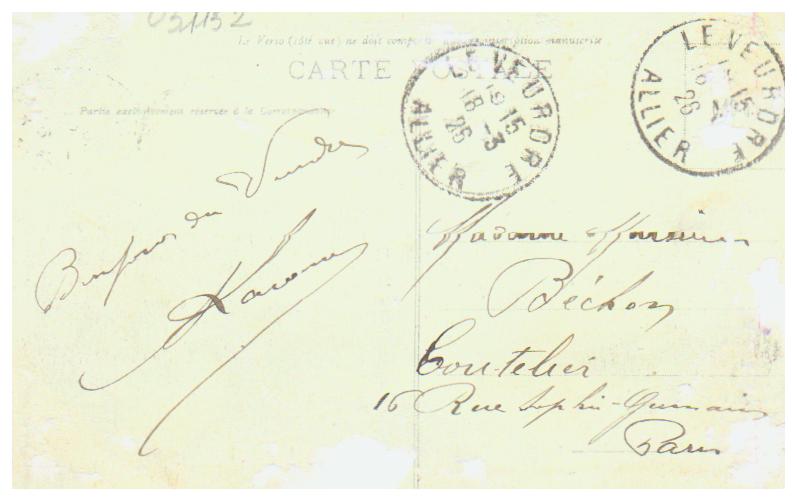 03/152
Le Verso (côté vue) ne doit comporter inscription manuscrite
CARTE POSTALE
Partie exclusivement réservée à la Correspondance
LE VEURDRE
18 15
18 -3
26
ALLIER
LE VEURDRE
15
18
26
ALLIER
Bonjour du Veurdre
Madame Monsieur
Béchon
Coutelier
16 Rue Sophie-Germain
Paris